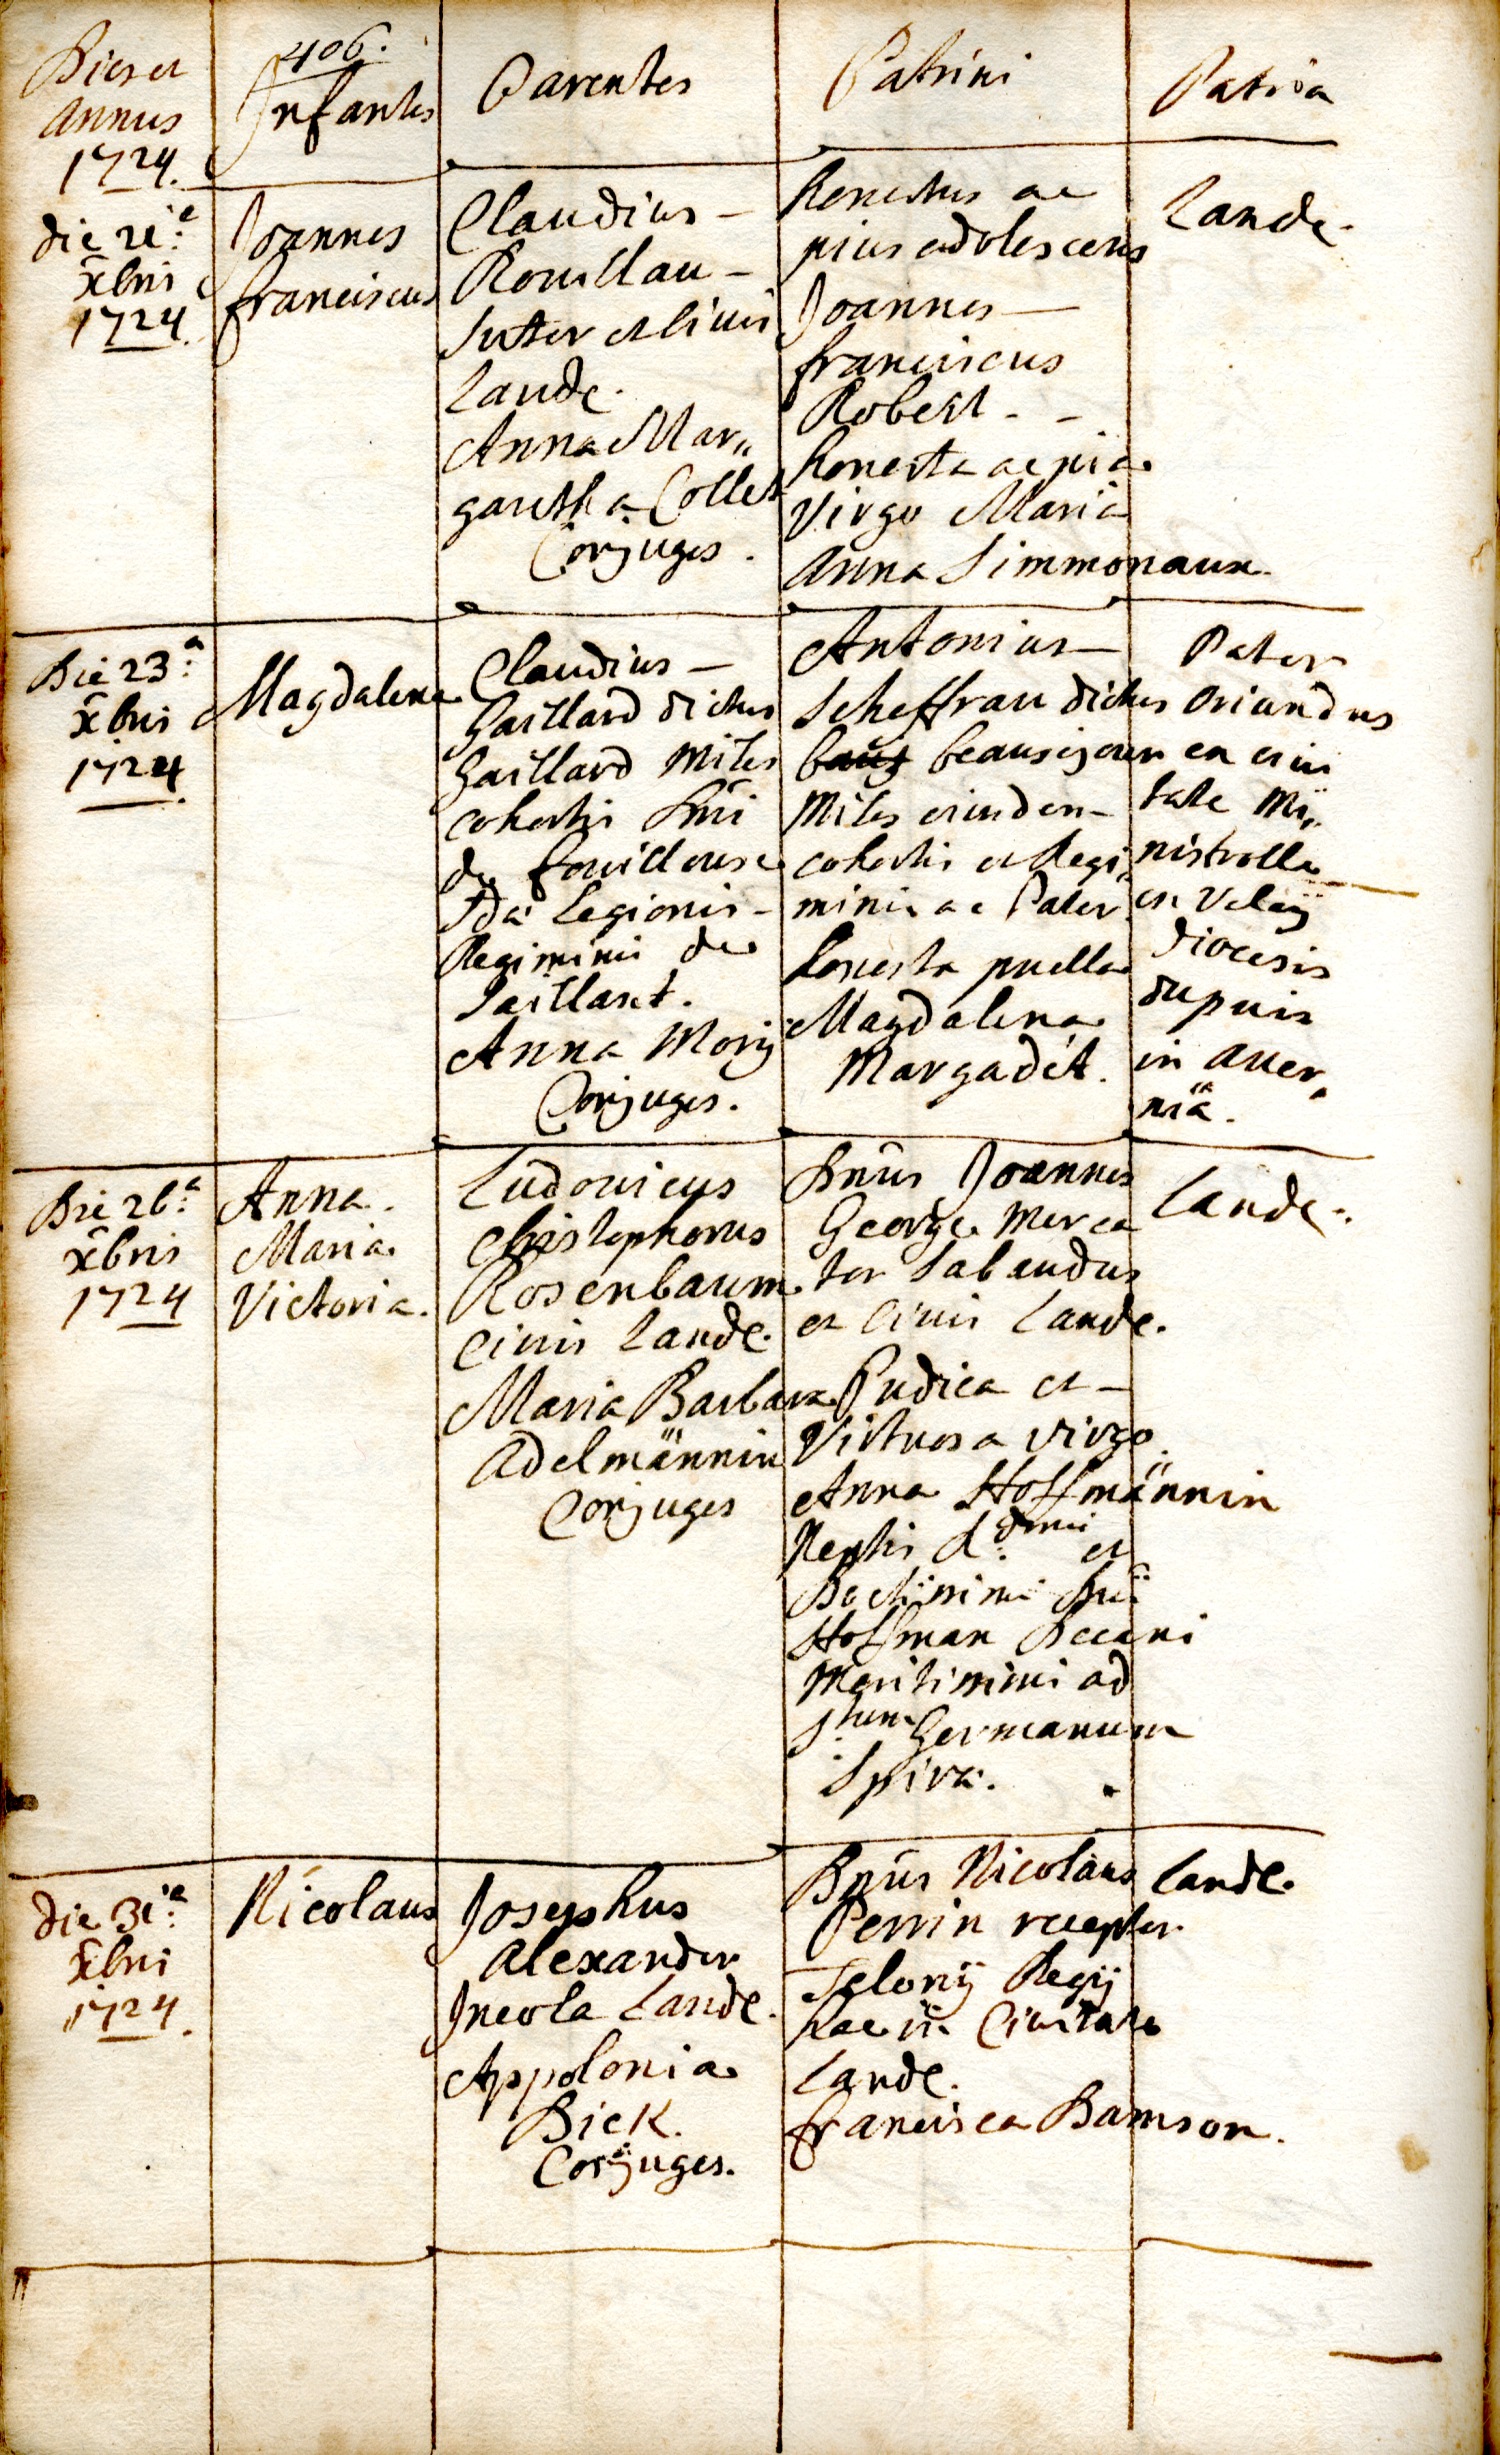 406.
Dies et
annus
1724.
Infantes
Parentes
Patrini
Patria
die 21.a
xbris
1724.
Joannes
franciscus
Claudius –
Rouillau –
Sutor et civis
Lande.
Anna Mar„
garetha Collet
Conjuges.
honestus ac
pius adolescens
Joannes –
franciscus
Robert – –
honesta ac pia
virgo Maria
anna Simmonaux.
Lande.
Die 23.a
xbris
1724.
Magdalena
Claudius –
Gaillard dictus
Gaillard Miles
cohortis Dni
de fouilleuse
2dae Legionis –
Regiminis de
Vaillant.
Anna Mory
Conjuges.
Antonius –
Scheffrau dictus
beausejour
Miles eiusdem –
cohortis et Regi„
minis ac Pater
honesta puella
Magdalena
Margadét.
Pater
oriundus
ex civi
tate Mi„
nistrolle
en Velaÿ
diocesis
dupuis
in auer„
niä.
Die 26.a
xbris
1724
Anna
Maria
Victoria.
Ludovicus
Christophorus
Rosenbaum
civis Lande.
Maria Barbara
adelmännin
Conjuges
Dnus Joannes
George Merca
tor Sabaudus
et civis Lande.
Pudica et –
Virtuosa virgo
Anna Hoffmännin
Neptis Rdmi et
Doctissimi Dni
Hoffman Decani
Meritissimi ad
Stum Germanum
Spirae.
Lande.
die 31.a
xbris
1724.
Nicolaus
Josephus
alexander
Incola Lande.
Appolonia
Bick.
Conjuges.
Dnus Nicolaus
Perrin receptor
Telonÿ Regÿ
hac in Civitate
Lande.
francisca Bamson.
Lande.